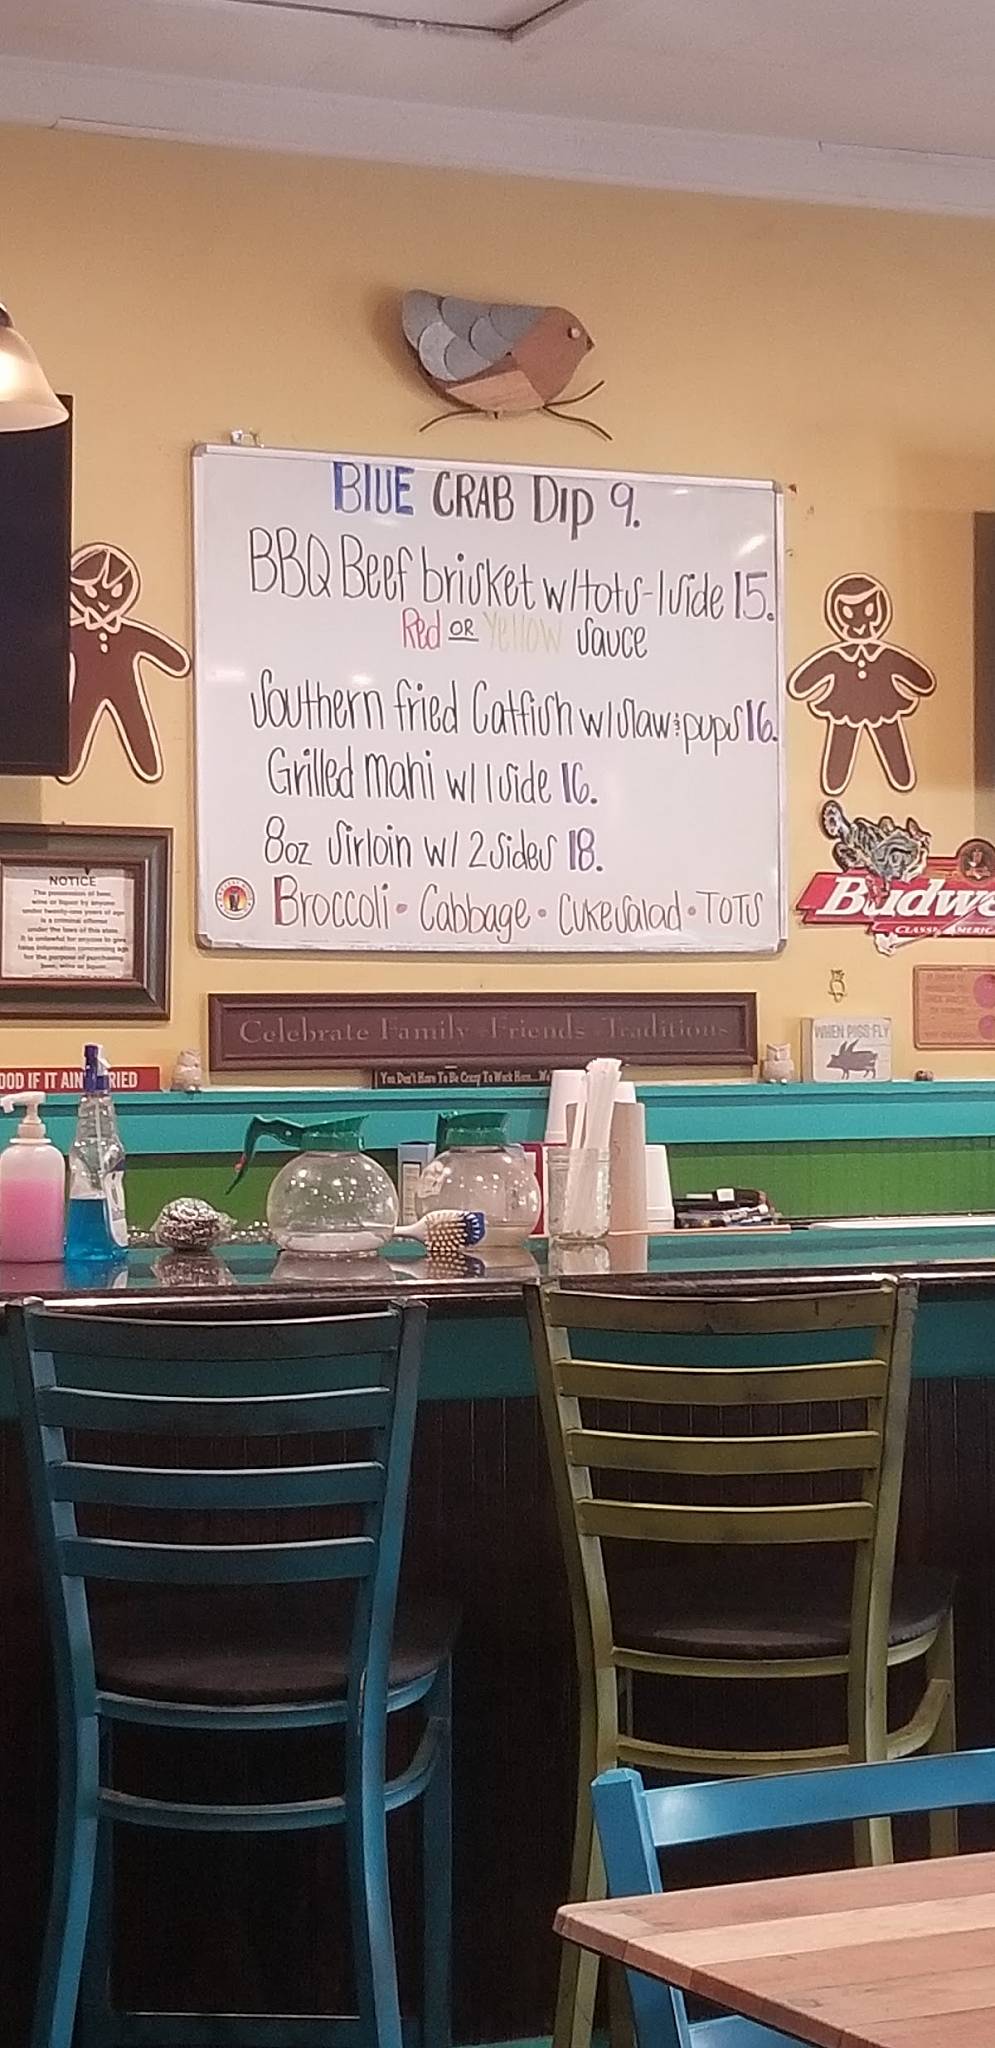 BLUE CRAB DIP 9.
BBQ Beef brisket w/tots-1side 15.
Red OR Yellow sauce
Southern fried Catfish w/slaw & pups 16.
Grilled mahi w/ 1side 16.
8oz sirloin w/ 2 sides 18.
Broccoli • Cabbage • Cuke salad • TOTS
NOTICE
The possession of beer,
wine or liquor by anyone
under twenty-one years of age
is a criminal offense
under the laws of this state.
It is unlawful for anyone to give
false information concerning age
for the purpose of purchasing
beer, wine or liquor.
Budwe
CLASSIC AMERIC
Celebrate Family Friends Traditions
WHEN PIGS FLY
OOD IF IT AIN RIED
You Don't Have To Be Crazy To Work Here...